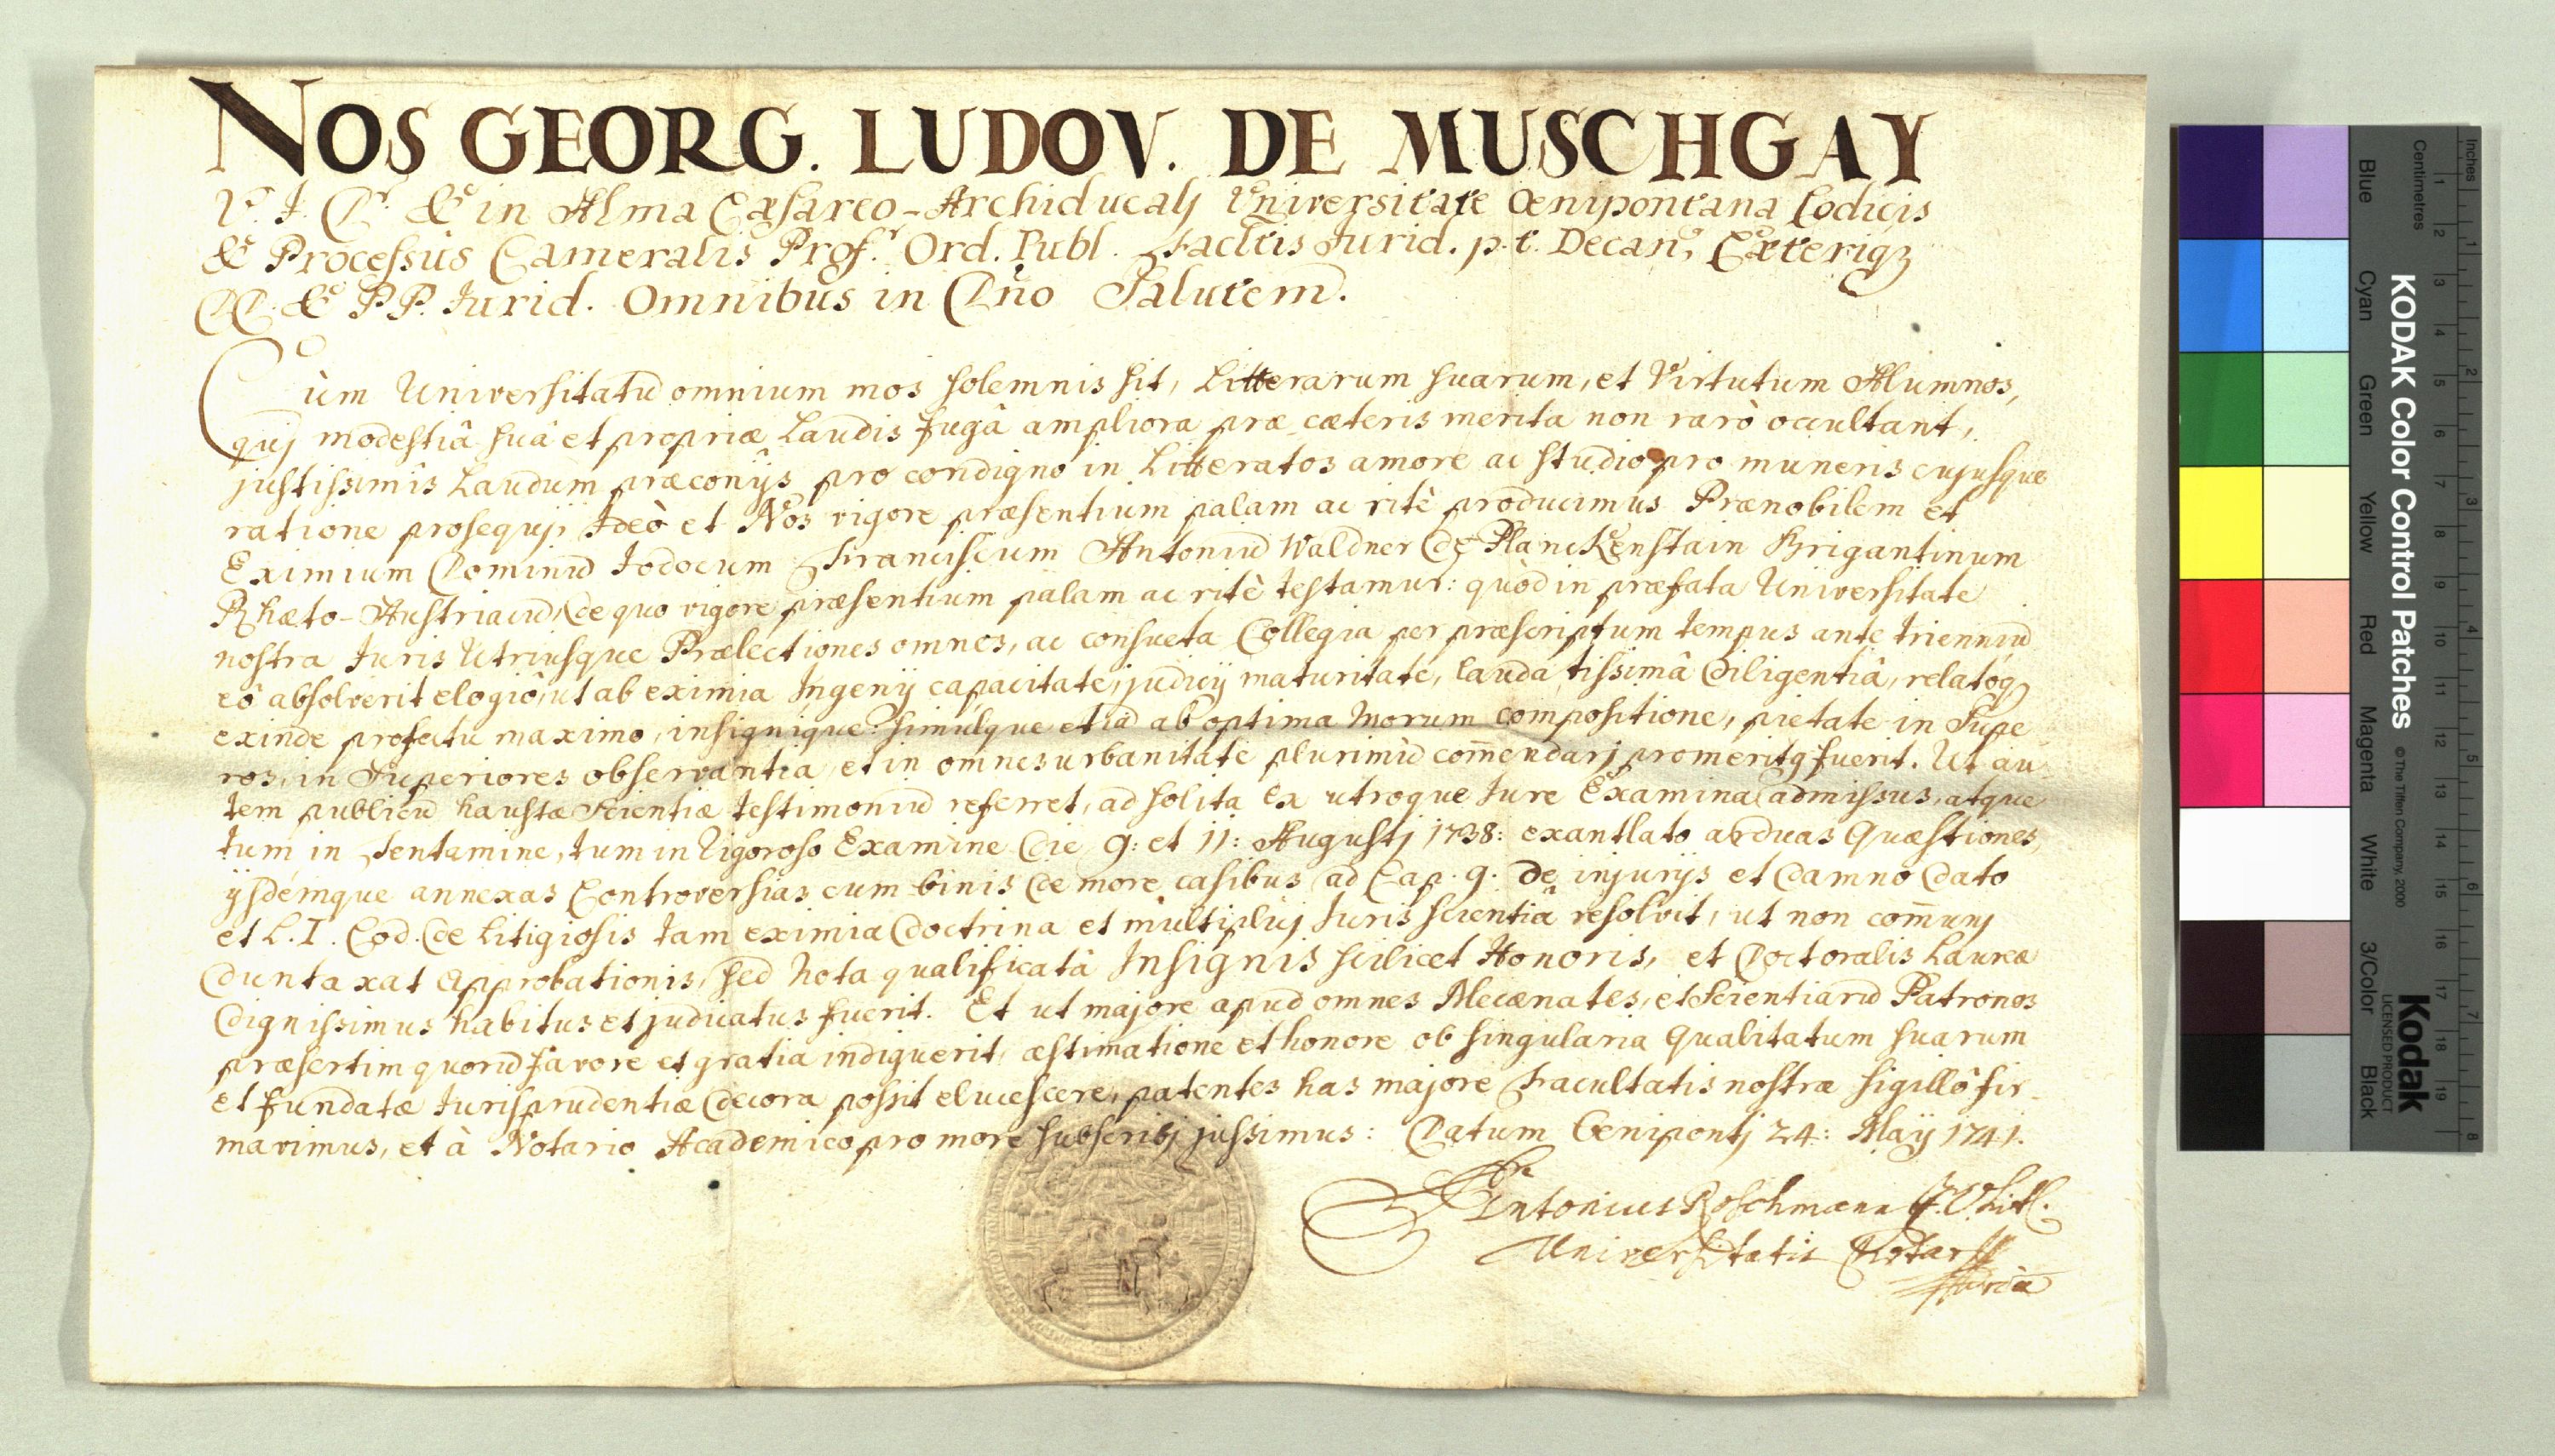 NOS GEORG. LUDOV. DE MUSCHGAY
V. J. Dr. & in Alma Cæsareo-Archiducalj Universitate Œnipontana Codicis
& Processus Cameralis Profr. Ord. Publ. Facltis Jurid. p. t. Decan9, Cæteriqz
DD. & PP. Jurid. Omnibus in Dño Salutem.
Cùm Universitatū omnium mos solemnis sit, Litterarum suarum, et Virtutum Alumnos,
quj modestiâ suâ et propriæ Laudis fugâ ampliora præ cæteris merita non rarò occultant,
justissimis Laudum præconijs pro condigno in Litteratos amore ac studio pro muneris cujusque
ratione prosequj, Ideò et Nos vigore præsentium palam ac ritè producimus Prænobilem et
Eximium Dominū Jodocum Franciscum Antoniū Waldner de Planckenstain Brigantinum
Rhæto-Austriacū, de quo vigore præsentium palam ac ritè testamur: quòd in præfata Universitate
nostra Juris Utriusque Prælectiones omnes, ac consueta Collegia per præscriptum tempus ante trienniū
eô absolverit elogiô, ut ab eximia Ingenij capacitate, judicij maturitate, laudatissimâ diligentiâ, relatoqz
exinde profectu maximo, insignique: simulque etiā ab optima morum compositione, pietate in Supe
ros, in Superiores observantia, et in omnes urbanitate plurimùm com̄endarj promerit9 fuerit. Ut au
tem publicū haustæ Scientiæ testimoniū referret, ad solita ex utroque Jure Examina admissus, atque
tum in Tentamine, tum in Rigoroso Examine die 9: et 11: Augustj 1738: exantlato arduas Quæstiones,
ijsdémque annexas Controversias cum binis de more casibus ad Cap. 9. De injurijs et damno dato
et L. I. Cod. de Litigiosis tam eximia doctrina et multiplicj Juris scientia resolvit, ut non com̄unj
duntaxat Approbationis, sed Nota qualificatâ Insignis scilicet Honoris, et Doctoralis Laureæ
dignissimus habitus et judicatus fuerit. Et ut majore apud omnes Mecænates, et Scientiarū Patronos
præsertim quorū favore et gratia indiguerit, æstimatione et honore ob singularia qualitatum suarum
et fundatæ Jurisprudentiæ decora possit elucescere, patentes has majore Facultatis nostræ sigillô fir-
mavimus, et à Notario Academico pro more subscribj jussimus: Datum Œnipontj 24: Maij 1741.
Antonius Roschmann J. V. Lict.
Universitatis Notar9
KODAK Color Control Patches
© The Tiffen Company, 2000
Kodak
LICENSED PRODUCT
Inches 1 2 3 4 5 6 7 8
Centimetres 1 2 3 4 5 6 7 8 9 10 11 12 13 14 15 16 17 18 19
Blue Cyan Green Yellow Red Magenta White 3/Color Black